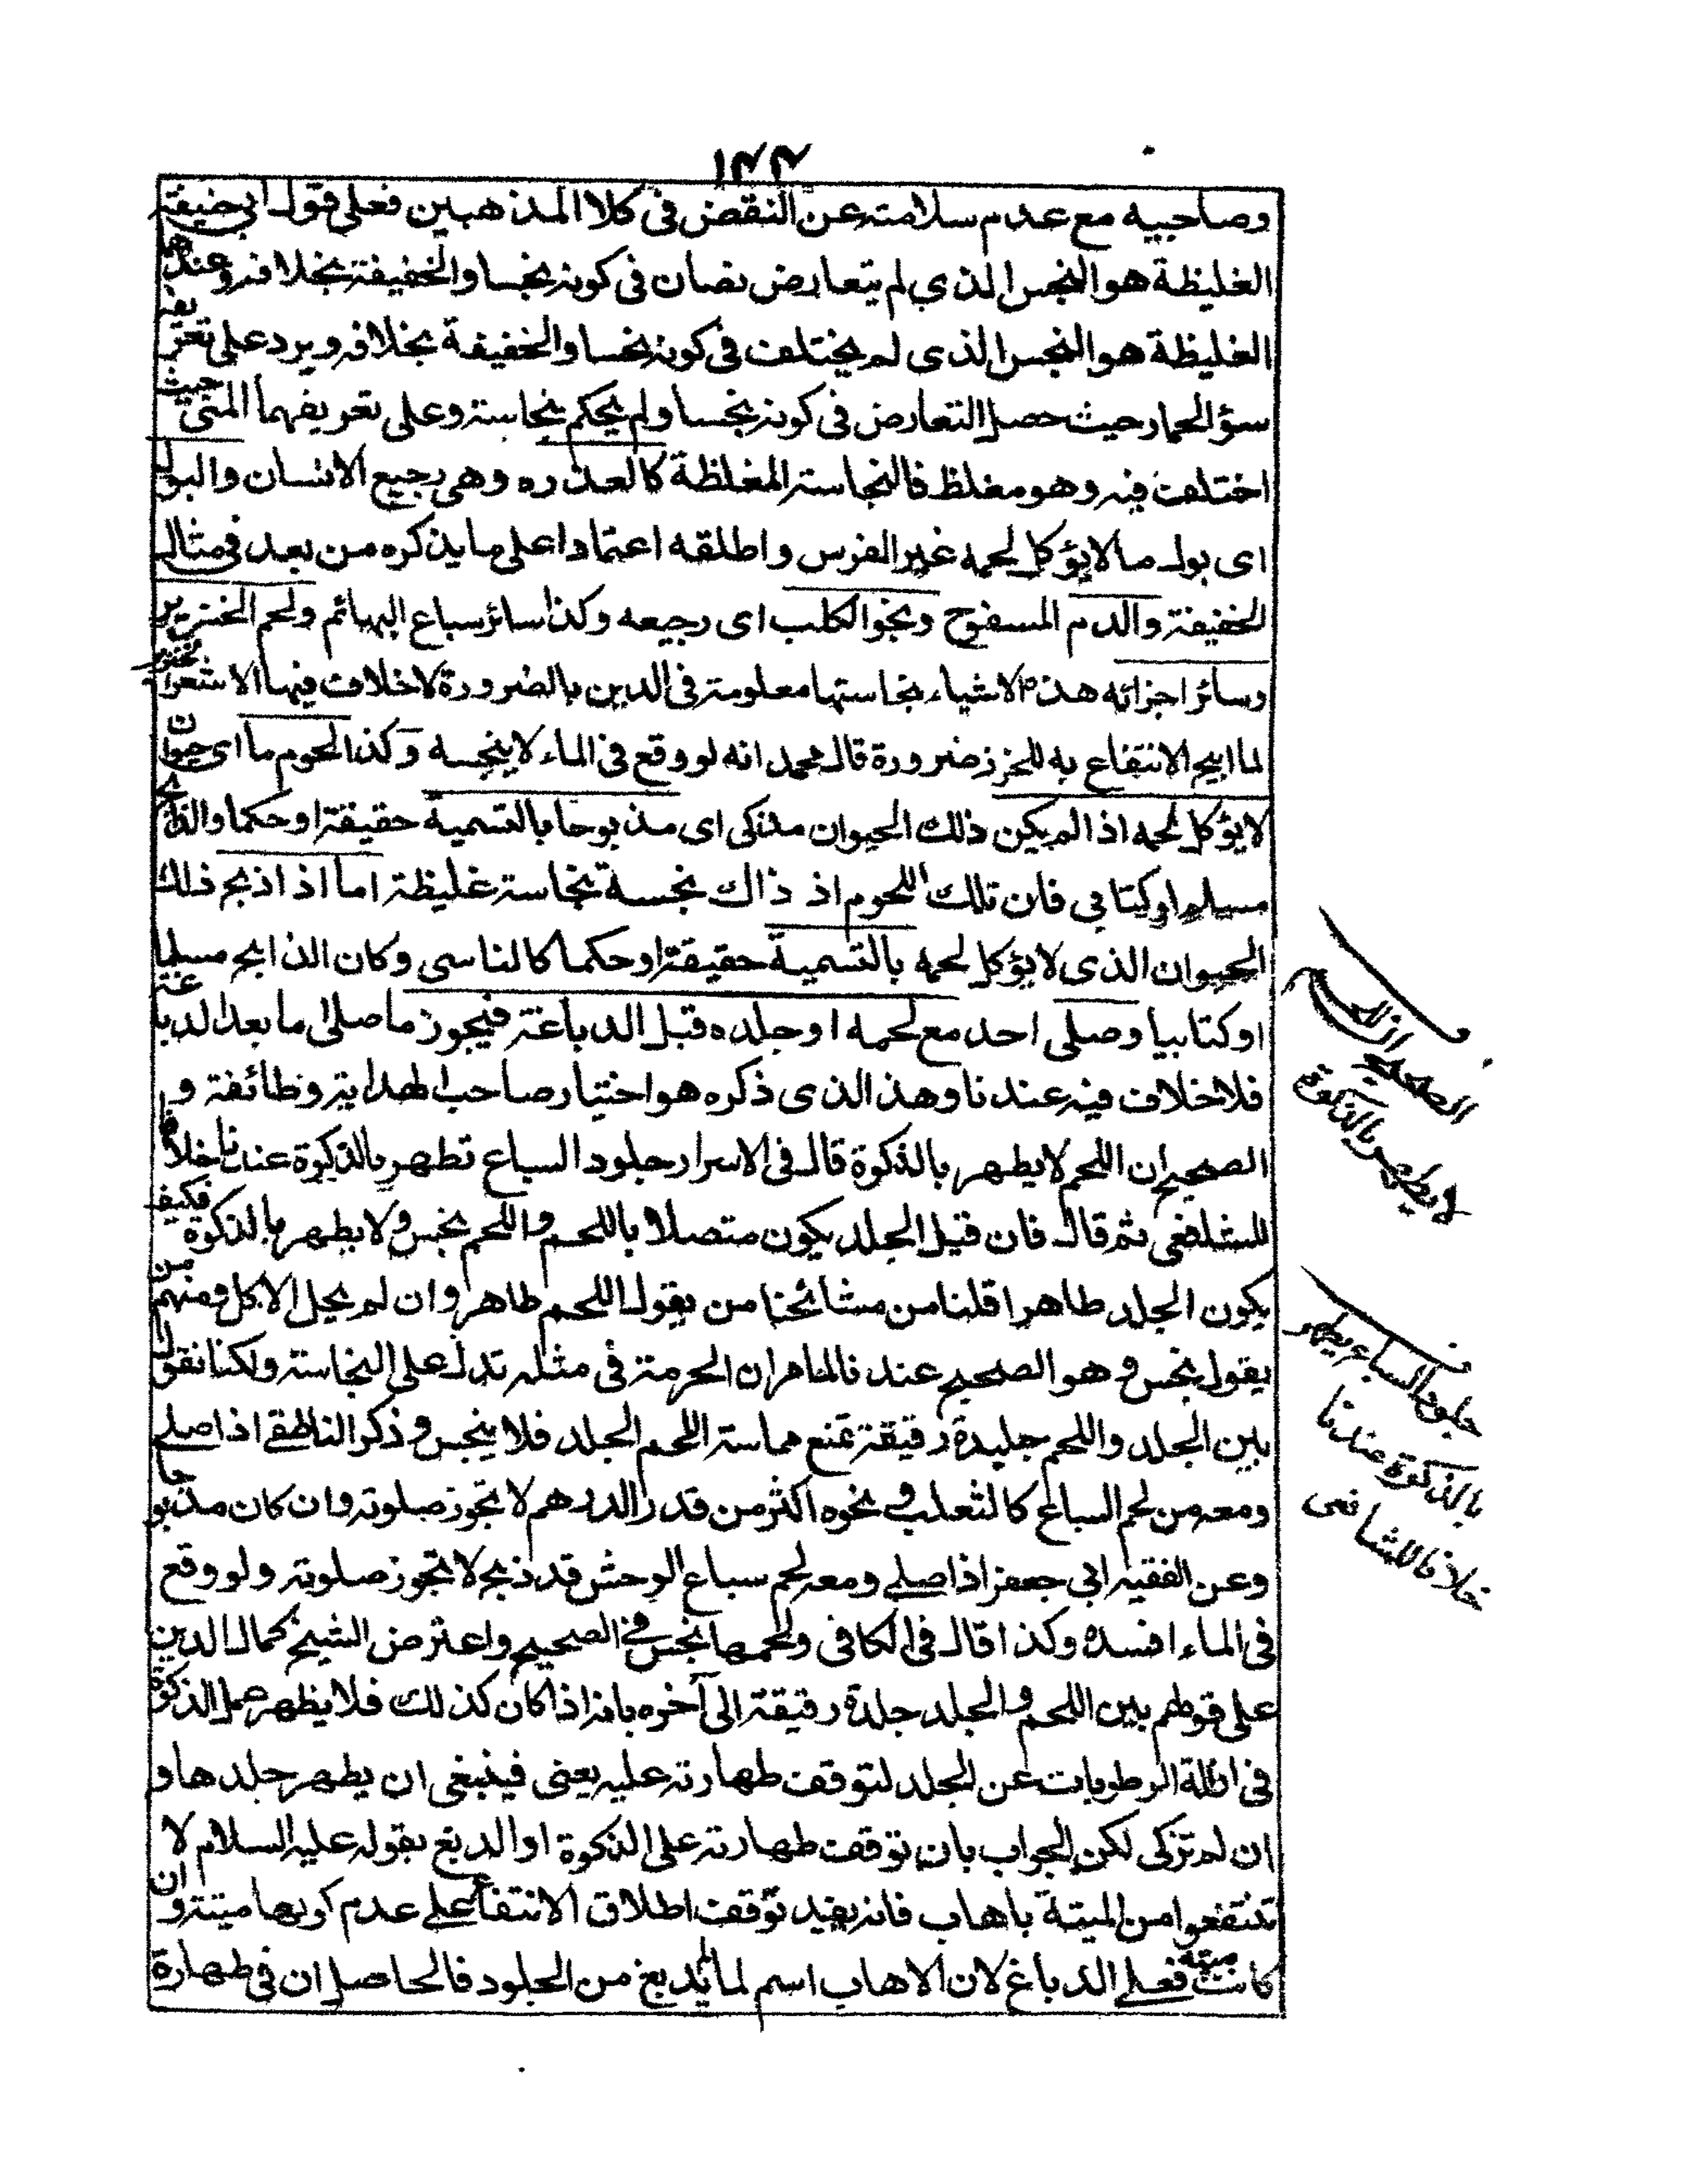 ١٤٤
وصاحبيه مع عدم سلامته عن النقض فى كلا المذهبين فعلى قول ابى حنيفة
الغليظة هو النجس الذي لم يتعارض نصان فى كونه نجسا والخفيفة بخلافه وعندهما
الغليظة هو النجس الذى لم يختلف فى كونه نجسا والخفيفة بخلافه ويرد على تعريفه
سؤر الحمار حيث حصل التعارض فى كونه نجسا ولم يحكم بنجاسته وعلى تعريفهما المنى حيث
اختلف فيه وهو مغلظ فالنجاسة المغلظة كالعذره وهى رجيع الانسان والبول
اى بول مالا يؤكل لحمه غير الفرس واطلقه اعتمادا على ما يذكره من بعد فى مثال
الخفيفة والدم المسفوح ونجو الكلب اى رجيعه وكذا سائر سباع البهائم ولحم الخنزير
وسائر اجزائه هذه الاشياء نجاستها معلومة فى الدين بالضرورة لا خلاف فيها الا شعر الخنزير
لما ابيح الانتفاع به للخرز ضرورة قال محمد انه لو وقع فى الماء لا ينجسه وكذا لحوم ما اى حيوان
لا يؤكل لحمه اذا لم يكن ذلك الحيوان مذكى اى مذبوحا بالتسمية حقيقة او حكما والذابح
مسلم او كتابى فان تلك اللحوم اذ ذاك نجسة نجاسة غليظة اما اذا ذبح ذلك
الحيوان الذى لا يؤكل لحمه بالتسمية حقيقة او حكما كالناسى وكان الذابح مسلما
او كتابيا وصلى احد مع لحمه او جلده قبل الدباغة فيجوز ما صلى اما بعد الدباغة
فلا خلاف فيه عندنا وهذا الذى ذكره هو اختيار صاحب الهداية وطائفة و
الصحيح ان اللحم لا يطهر بالذكوة قال فى الاسرار جلود السباع تطهر بالذكوة عندنا خلافا
للشافعى ثم قال فان قيل الجلد يكون متصلا باللحم واللحم نجس ولا يطهر بالذكوة فكيف
يكون الجلد طاهرا قلنا من مشائخنا من يقول اللحم طاهر وان لم يحل الاكل ومنهم من
يقول نجس وهو الصحيح عندنا لما مر ان الحرمة فى مثله تدل على النجاسة ولكنا نقول
بين الجلد واللحم جليدة رقيقة تمنع مماسة اللحم الجلد فلا ينجس وذكر الناطفى اذا صلى
ومعه من لحم السباع كالثعلب ونحوه اكثر من قدر الدرهم لا تجوز صلوته وان كان مذبوحا
وعن الفقيه ابى جعفر اذا صلى ومعه لحم سباع الوحش قد ذبح لا تجوز صلوته ولو وقع
فى الماء افسده وكذا قال فى الكافى ولحمها نجس فى الصحيح واعترض الشيخ كمال الدين
على قولهم بين اللحم والجلد جلدة رقيقة الى آخره بانه اذا كان كذلك فلا يظهر عمل الذكوة
فى ازالة الرطوبات عن الجلد لتوقف طهارته عليه يعنى فينبغى ان يطهر جلدها و
ان لم تزكى لكن الجواب بان توقف طهارته على الذكوة او الدبغ بقوله عليه السلام لا
تنتفعوا من الميتة باهاب فانه يفيد توقف اطلاق الانتفاع على عدم كونها ميتة وان
كانت ميتة فعلى الدباغ لان الاهاب اسم لما لم يدبغ من الجلود فالحاصل ان فى طهارة
الصحيح ان اللحم
لا يطهر بالذكوة
جلود السباع يطهر
بالذكوة عندنا
خلافا للشافعى